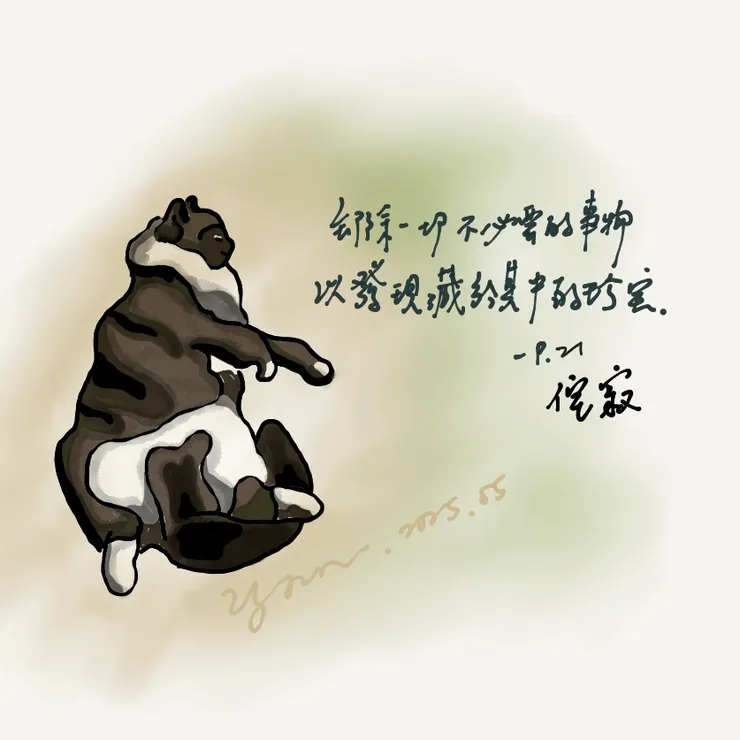 除一切不必要的事物
以發現藏於其中的珍宝.
-P.21
侘寂
2025.05